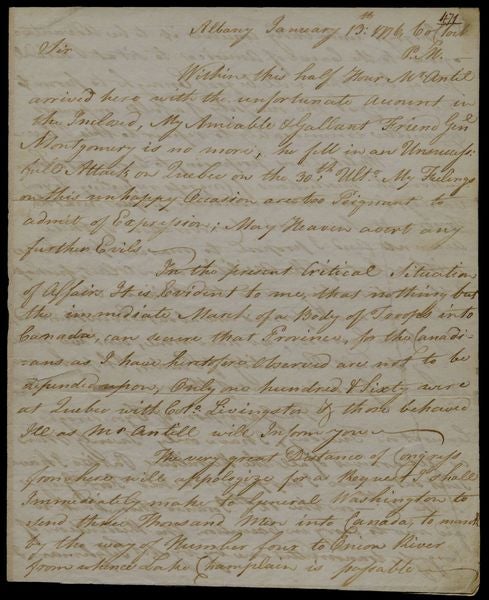 471
Albany January 13th: 1776, 6 o Clock
P.M.
Sir
Within this half Hour Mr Antil
arrived here with the unfortunate Account in
the Inclosed, My Amiable & Gallant Friend Genl
Montgomery is no more, he fell in an Unsuccess-
full Attack on Quebec on the 30th: Ulto. My Feelings
on this unhappy Occasion are too Poignant to
admit of Expression; May Heaven avert any
further Evils
In the present Critical Situation
of Affairs It is Evident to me, that nothing but
the immediate March of a Body of Troops into
Canada, can secure that Province, for the Canadi-
cans as I have heretofore Observed are not to be
depended upon, Only one hundred & Sixty were
at Quebec with Colo. Livingston & those behaved
Ill as Mr Antill will Inform you
The very great Distance of Congress
from here will appologize for a Request I shall
Immediately make to General Washington to
send three Thousand Men into Canada, to march
by the way of Number four to Onion River
from whence Lake Champlain is passable